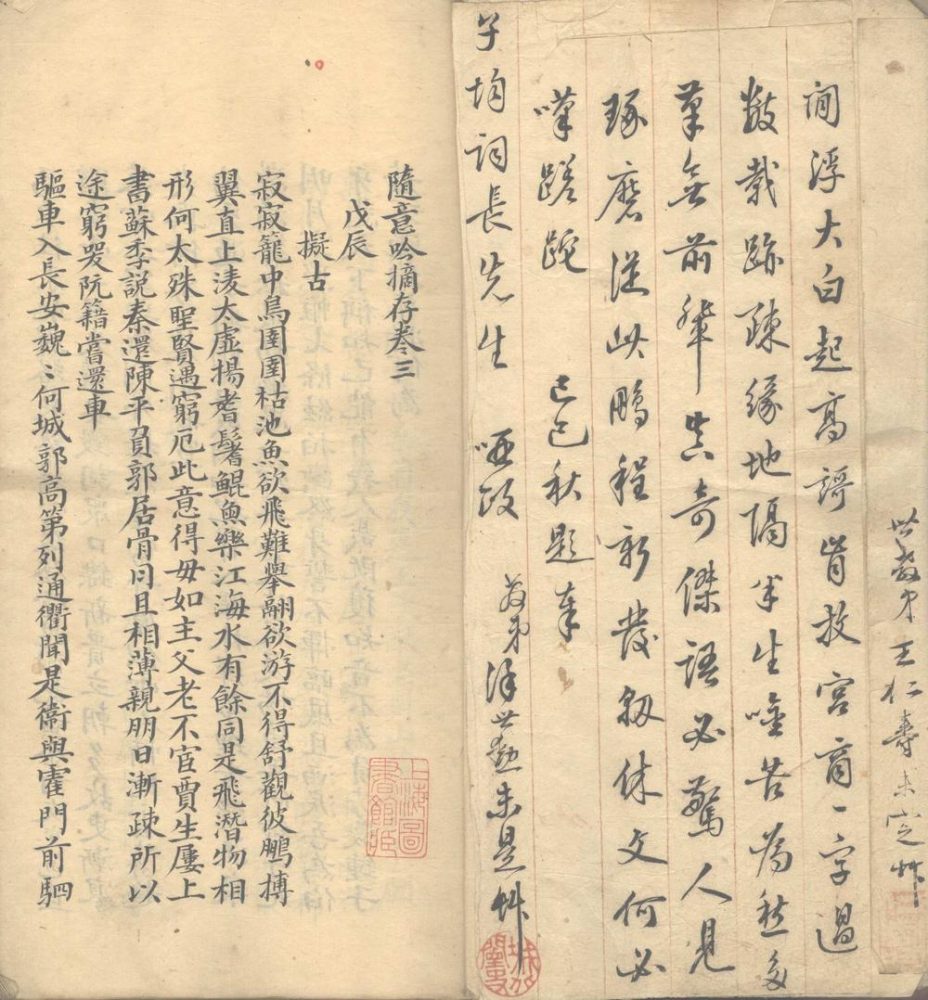 世教弟王仁壽未定艸
閒浮大白起高謌肯放宮商一字過
數載跡疎緣地隔半生吟苦為愁多
筆無前輩真奇傑語必驚人見
琢磨從此鵬程新發軔休文何必
嘆蹉跎 己巳秋題奉
子均詞長先生 哂政 弟徐世勳未是艸
隨意吟摘存卷三
戊辰
擬古
寂寂籠中鳥圉圉枯池魚欲飛難舉翮欲游不得舒觀彼鵬摶
翼直上淩太虛揚耆鬐鯤魚樂江海水有餘同是飛潛物相
形何太殊聖賢遇窮厄此意得毋如主父老不宦賈生屢上
書蘇季説秦還陳平負郭居骨肉且相薄親朋日漸疎所以
途窮哭阮籍嘗還車
驅車入長安巍〻何城郭高第列通衢聞是衛與霍門前駟
上海圖書館藏